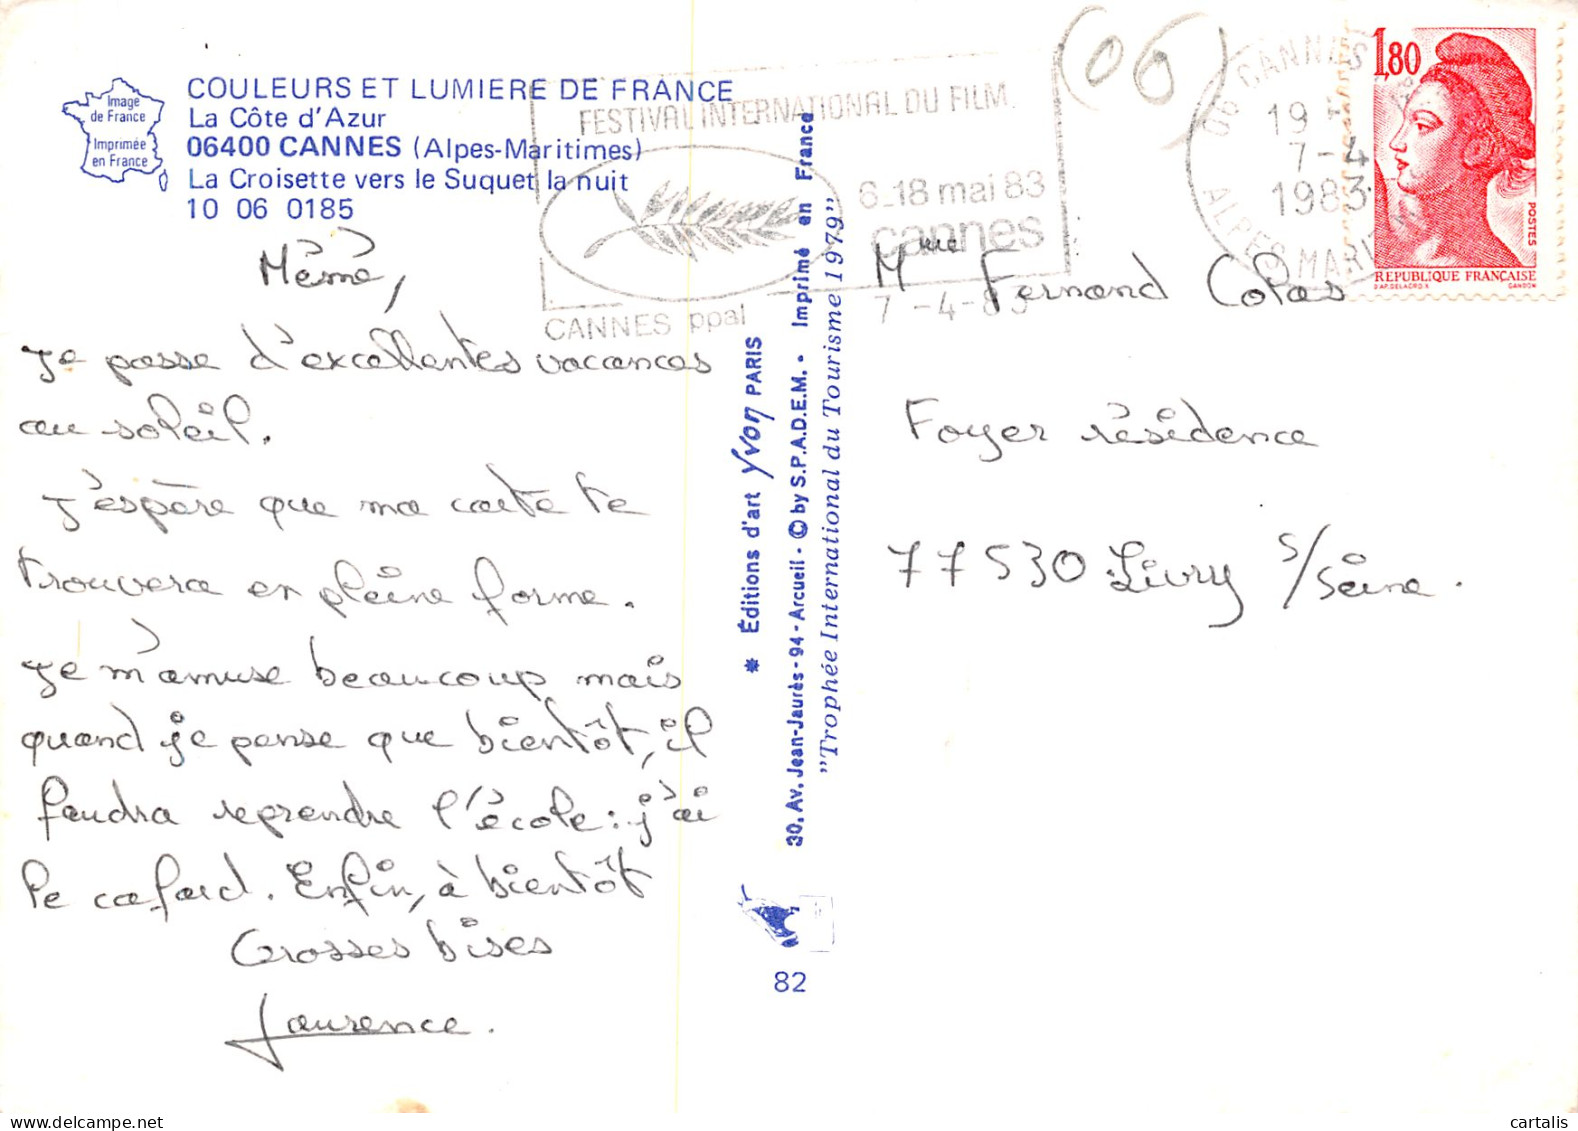 Image
de France
Imprimée
en France
COULEURS ET LUMIERE DE FRANCE
La Côte d'Azur
06400 CANNES (Alpes-Maritimes)
La Croisette vers le Suquet la nuit
10 06 0185
FESTIVAL INTERNATIONAL DU FILM
6-18 mai 83
cannes
CANNES ppal
7-4-83
(06)
06 CANNES
19 H
7-4
1983
ALPES MARIT
1,80
POSTES
REPUBLIQUE FRANÇAISE
D'AP. DELACROIX
GANDON
Mémé,
Je passe d'excellentes vacances
au soleil.
J'espère que ma carte te
trouvera en pleine forme.
Je m'amuse beaucoup mais
quand je pense que bientôt, il
faudra reprendre l'école : j'ai
le cafard. Enfin, à bientôt
Grosses bises
Laurence.
* Éditions d'art Yvon PARIS
30, Av. Jean-Jaurès - 94 - Arcueil - © by S.P.A.D.E.M. • Imprimé en France
"Trophée International du Tourisme 1979"
82
Mme Fernand Colas
Foyer résidence
77530 Livry s/Seine.
cartalis